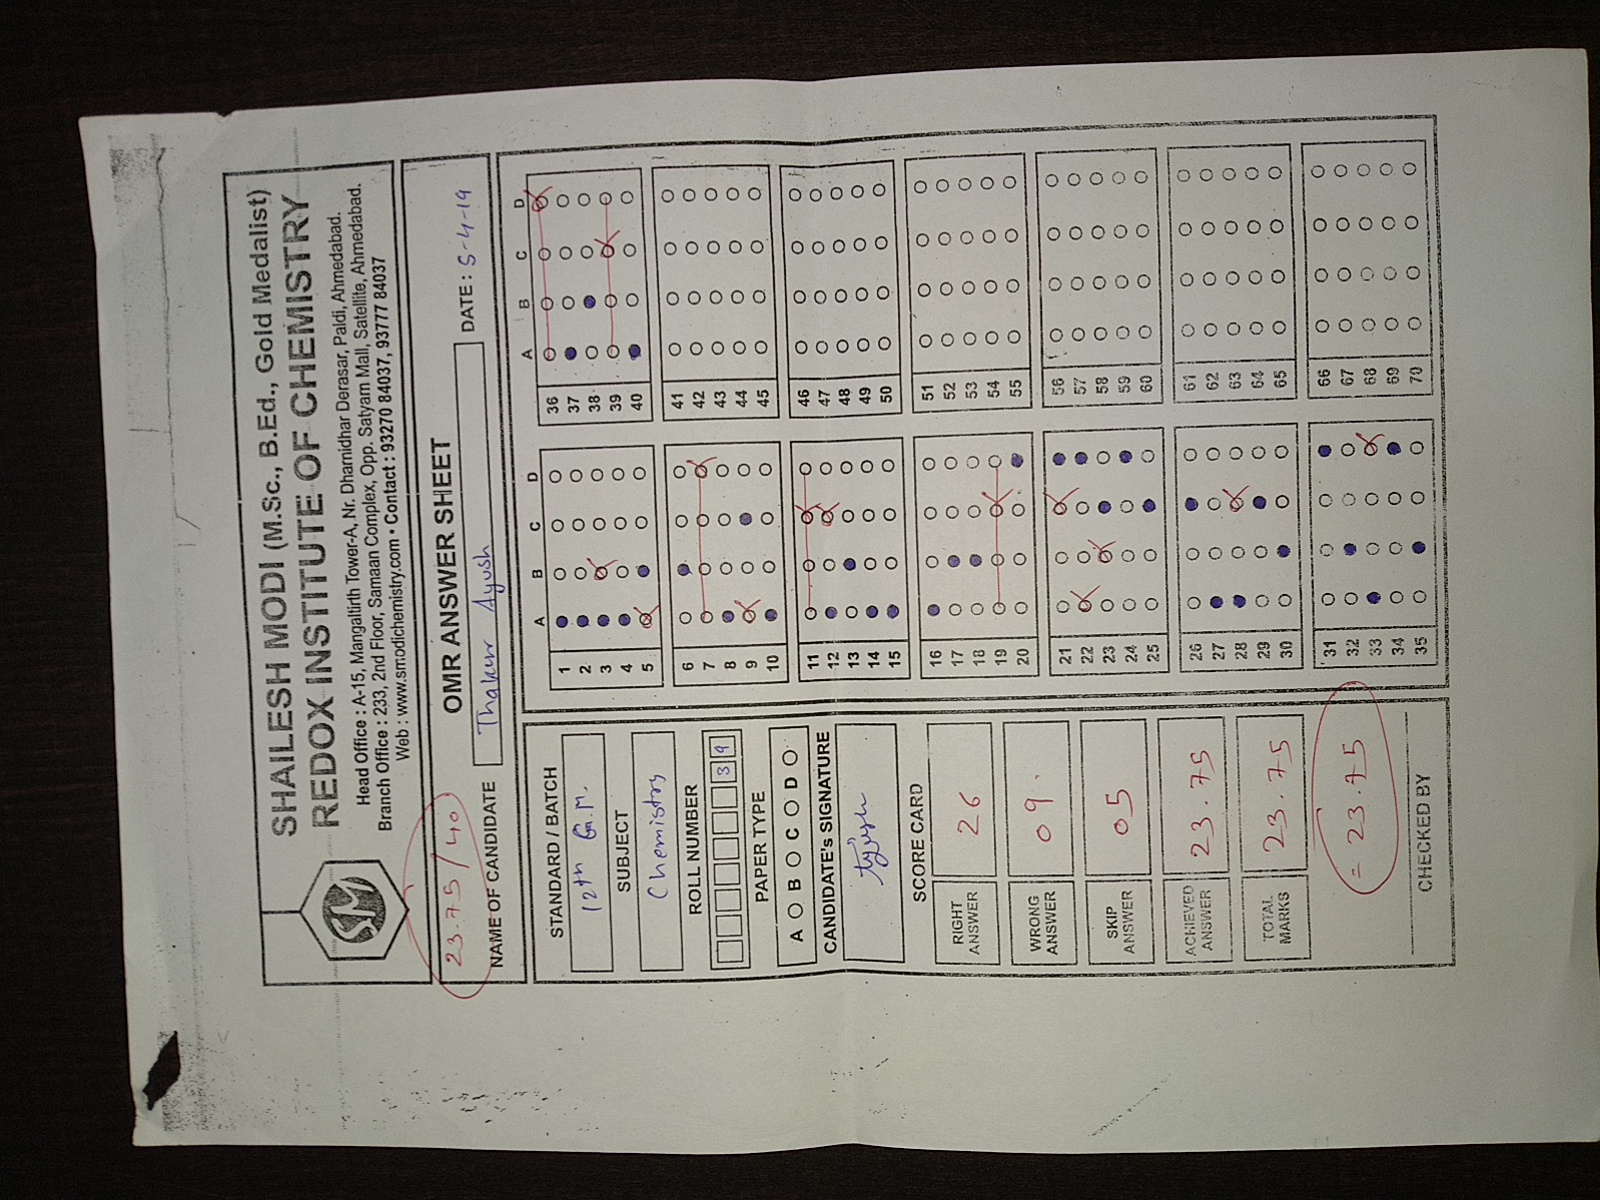 SHAILESH MODI (M.Sc., B.Ed., Gold Medalist)
REDOX INSTITUTE OF CHEMISTRY
SM
Head Office : A-15, Mangaltirth Tower-A, Nr. Dharnidhar Derasar, Paldi, Ahmedabad.
Branch Office : 233, 2nd Floor, Samaan Complex, Opp. Satyam Mall, Satellite, Ahmedabad.
Web : www.smodichemistry.com • Contact : 93270 84037, 93777 84037
23.75/40
OMR ANSWER SHEET
NAME OF CANDIDATE Thakur Ayush DATE : 5-4-19
STANDARD / BATCH
12th G.M.
SUBJECT
Chemistry
ROLL NUMBER
39
PAPER TYPE
A B C D
CANDIDATE's SIGNATURE
Ayush
SCORE CARD
RIGHT ANSWER 26
WRONG ANSWER 09.
SKIP ANSWER 05
ACHIEVED ANSWER 23.75
TOTAL MARKS 23.75
= 23.75
CHECKED BY
A B C D
1
2
3
4
5
6
7
8
9
10
11
12
13
14
15
16
17
18
19
20
21
22
23
24
25
26
27
28
29
30
31
32
33
34
35
A B C D
36
37
38
39
40
41
42
43
44
45
46
47
48
49
50
51
52
53
54
55
56
57
58
59
60
61
62
63
64
65
66
67
68
69
70